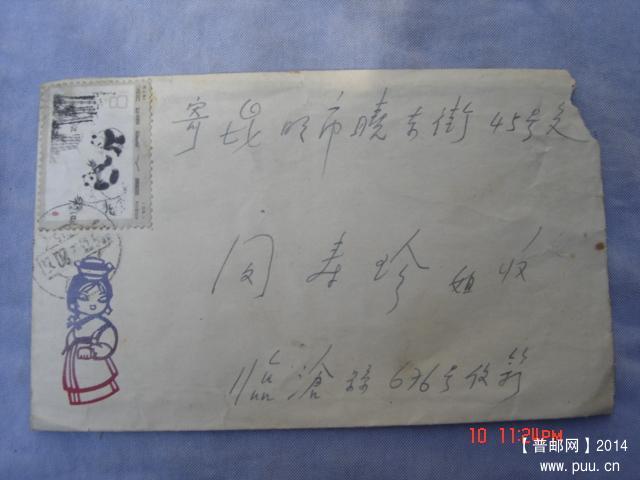 寄昆明市晓东街45号交
闵寿珍姐收
临沧 676号信箱
10 11:24PM
【普邮网】2014
www.puu.cn